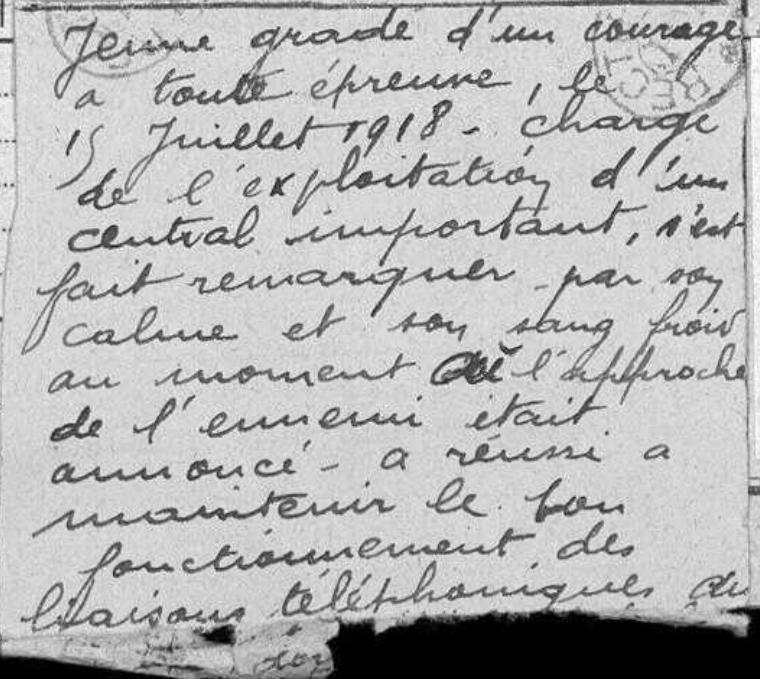 Jeune gradé d'un courage
a toute épreuve, le
15 Juillet 1918 - chargé
de l'exploitation d'un
central important, s'est
fait remarquer par son
calme et son sang froid
au moment où l'approche
de l'ennemi était
annoncé - a réussi a
maintenir le bon
fonctionnement des
liaisons téléphoniques du